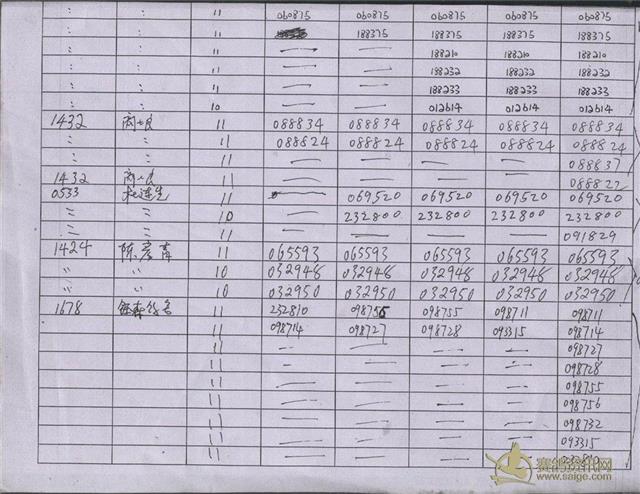 : : 11 060875 060875 060875 060875 060875
: : 11 188375 188375 188375 188375
: : 11 — — 188210 188210 188210
: : 11 — — 188232 188232 188232
: : 11 — — 188233 188233 188233
: : 10 — — 012614 012614 012614
1432 11 088834 088834 088834 088834 088834
: : 11 088824 088824 088824 088824 088824
: : 11 — — — — 088837
1432 11 088822
0533 11 — 069520 069520 069520 069520
= = 10 — 232800 232800 232800 232800
= = 11 — — — — 091829
1424 陈彦青 11 065593 065593 065593 065593 065593
" " 10 032948 032948 032948 032948 032948
" " 10 032950 032950 032950 032950 032950
1678 11 232810 098755 098755 098711 098711
11 098714 098727 098728 093315 098714
11 — — — — 098727
11 — — — — 098728
11 — — — — 098755
11 — — — — 098756
11 — — — — 098732
11 — — — — 093315
11 — — — — 232810
赛鸽资讯网
www.saige.com